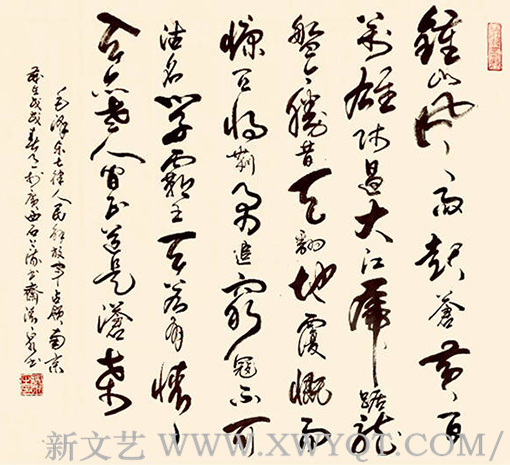 鍾山风雨起蒼黄百
萬雄师過大江虎踞龙
盤今勝昔天翻地覆慨而
慷宜将剩勇追窮寇不可
沽名学霸王天若有情
天亦老人间正道是滄桑
毛泽东七律人民解放军占领南京
岁在戊戌春 广西 书
新文艺 WWW.XWYQT.COM/